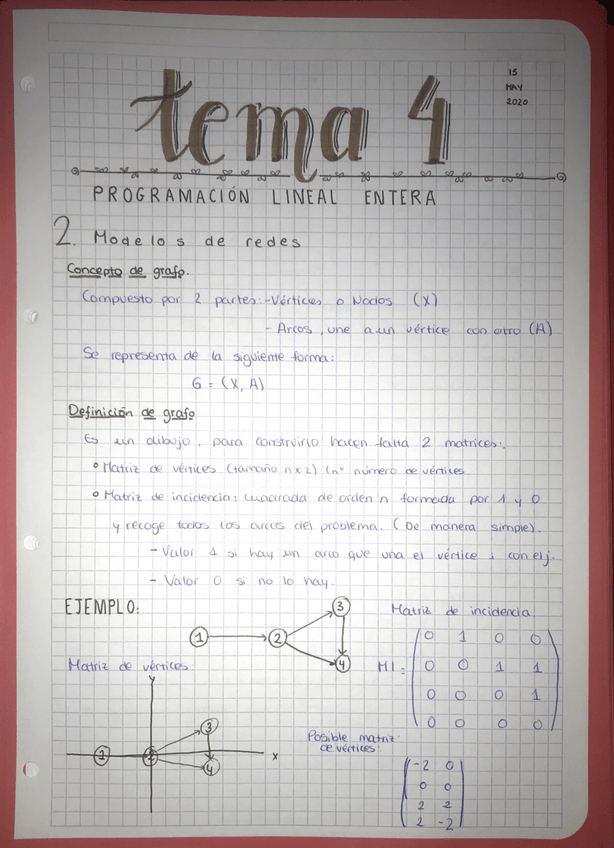 15
MAY
2020
tema 4
PROGRAMACIÓN LINEAL ENTERA
2. Modelos de redes
Concepto de grafo.
Compuesto por 2 partes: - Vértices o Nodos (X)
- Arcos, une a un vértice con otro (A)
Se representa de la siguiente forma:
G = (X, A)
Definición de grafo
Es un dibujo, para construirlo hacen falta 2 matrices:
° Matriz de vértices (tamaño n x 2) (nº número de vértices
° Matriz de incidencia: cuadrada de orden n formada por 1 y 0
y recoge todos los arcos del problema. (De manera simple).
- Valor 1 si hay un arco que una el vértice i con el j.
- Valor 0 si no lo hay.
EJEMPLO:
1 2 3 4
Matriz de incidencia
MI =
0 1 0 0
0 0 1 1
0 0 0 1
0 0 0 0
Matriz de vértices:
y
1 2 3 4
x
Posible matriz
de vértices:
-2 0
0 0
2 2
2 -2